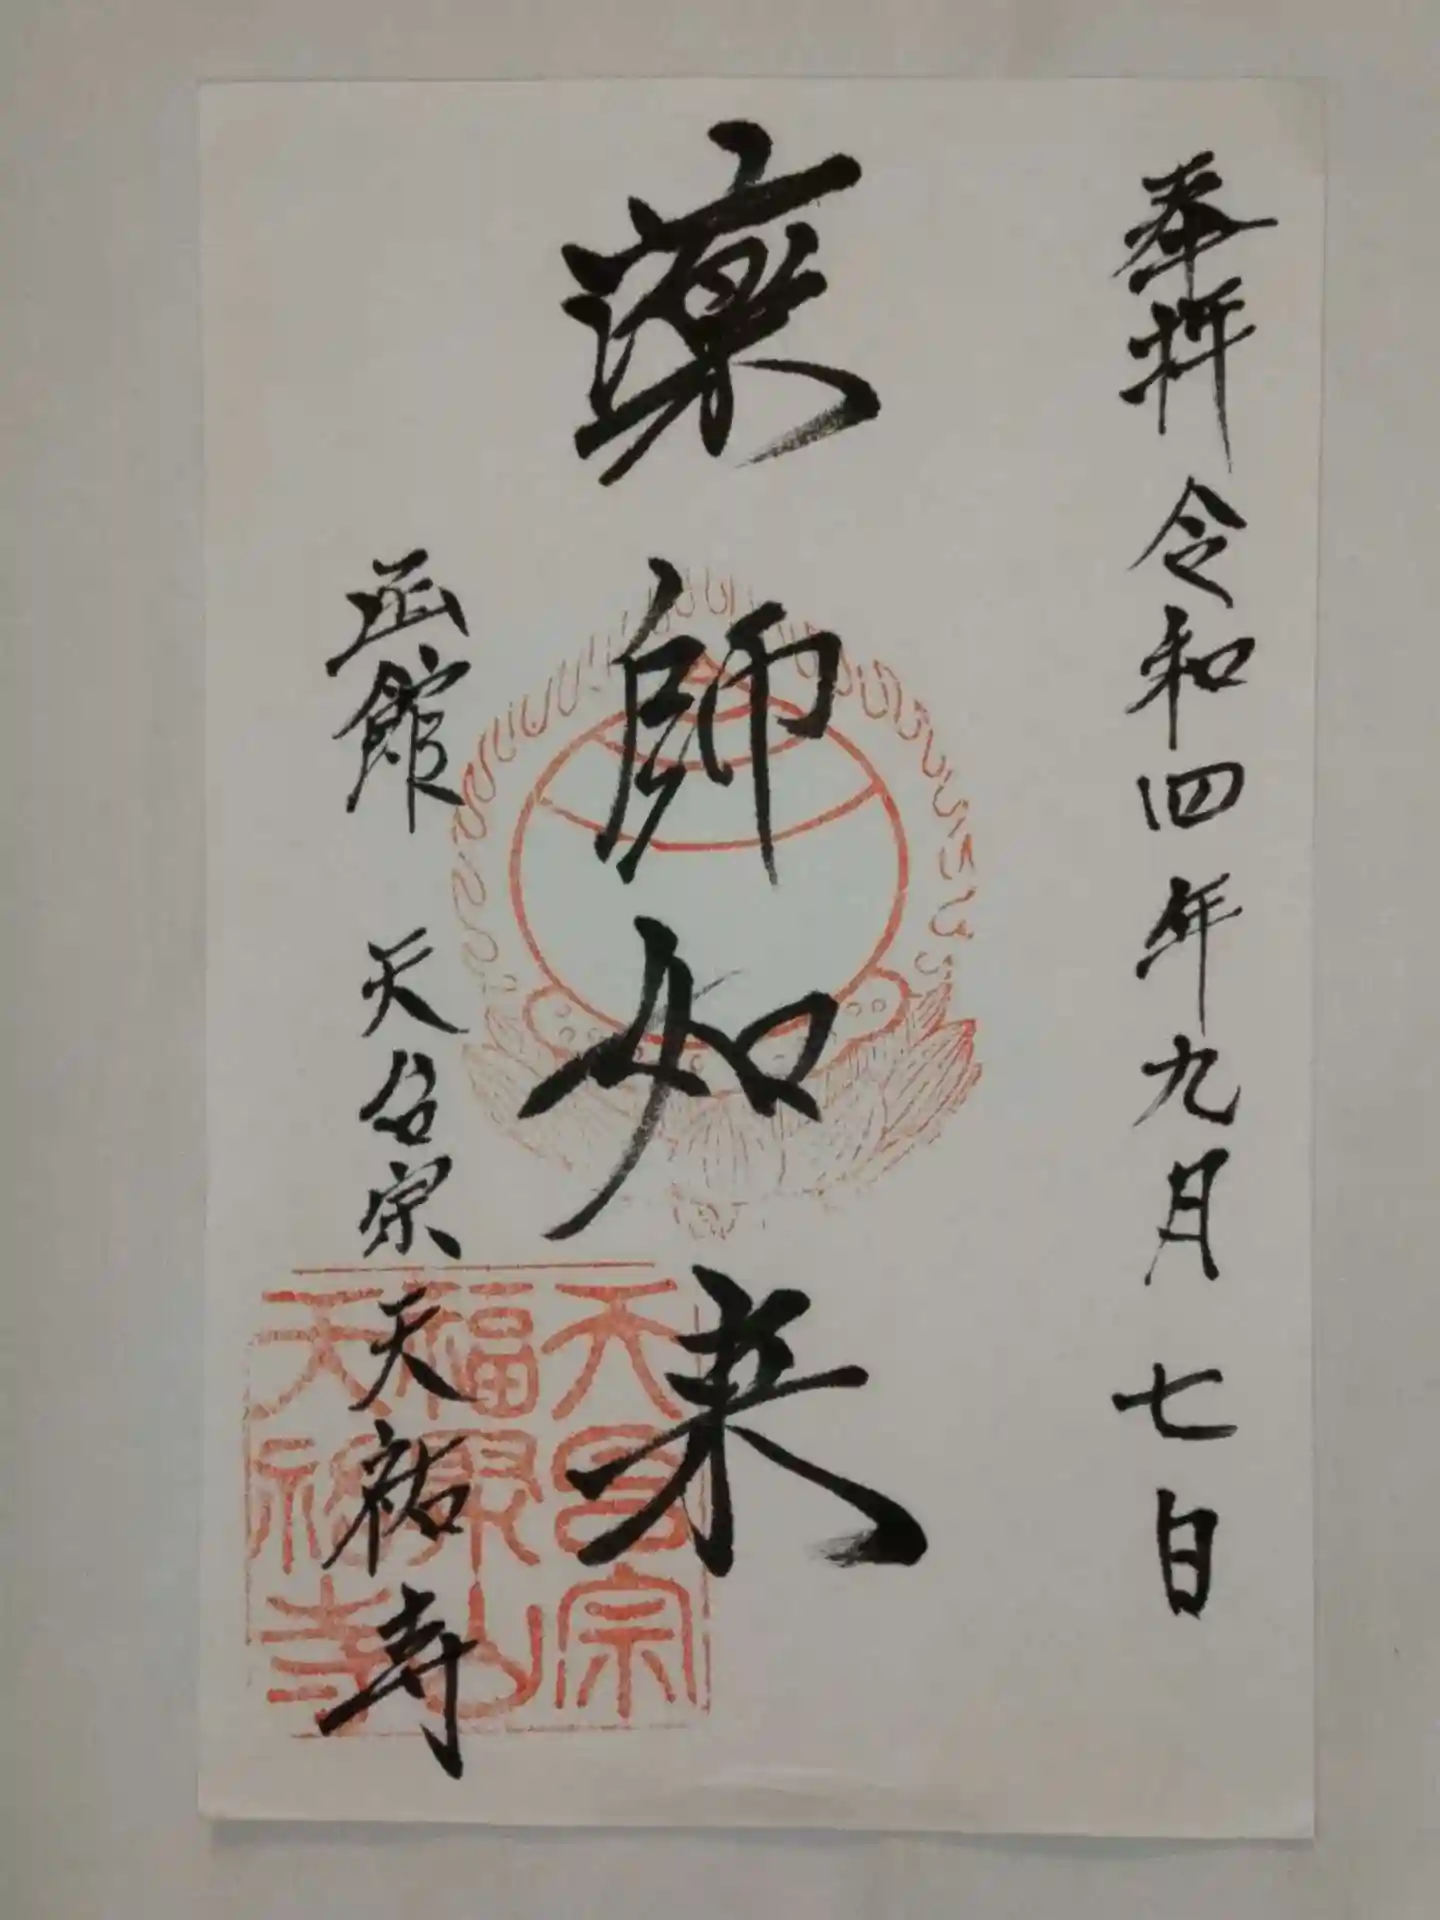 奉拝 令和四年九月七日
薬師如来
函館 天台宗 天祐寺
天台宗
福聚山
天祐寺